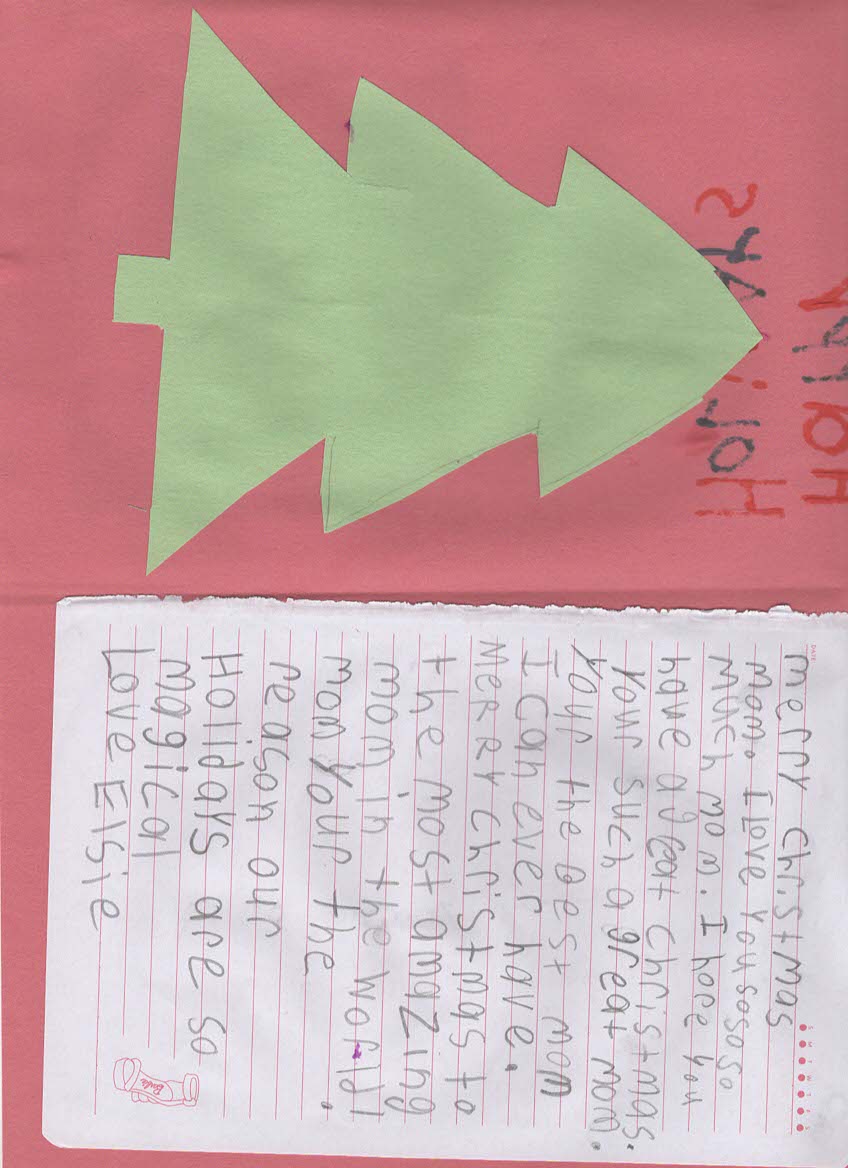 HAPPY
HOLiDAYS
DATE
S M T W T F S
merry christmas
mom. I love you sososo
much mom. I hope you
have a great christmas.
your such a great mom.
your the best mom
I can ever have.
Merry christmas to
the most amazing
mom in the world!
mom your the .
reason our
Hollidays are so
magical
Love Elsie
Barbie